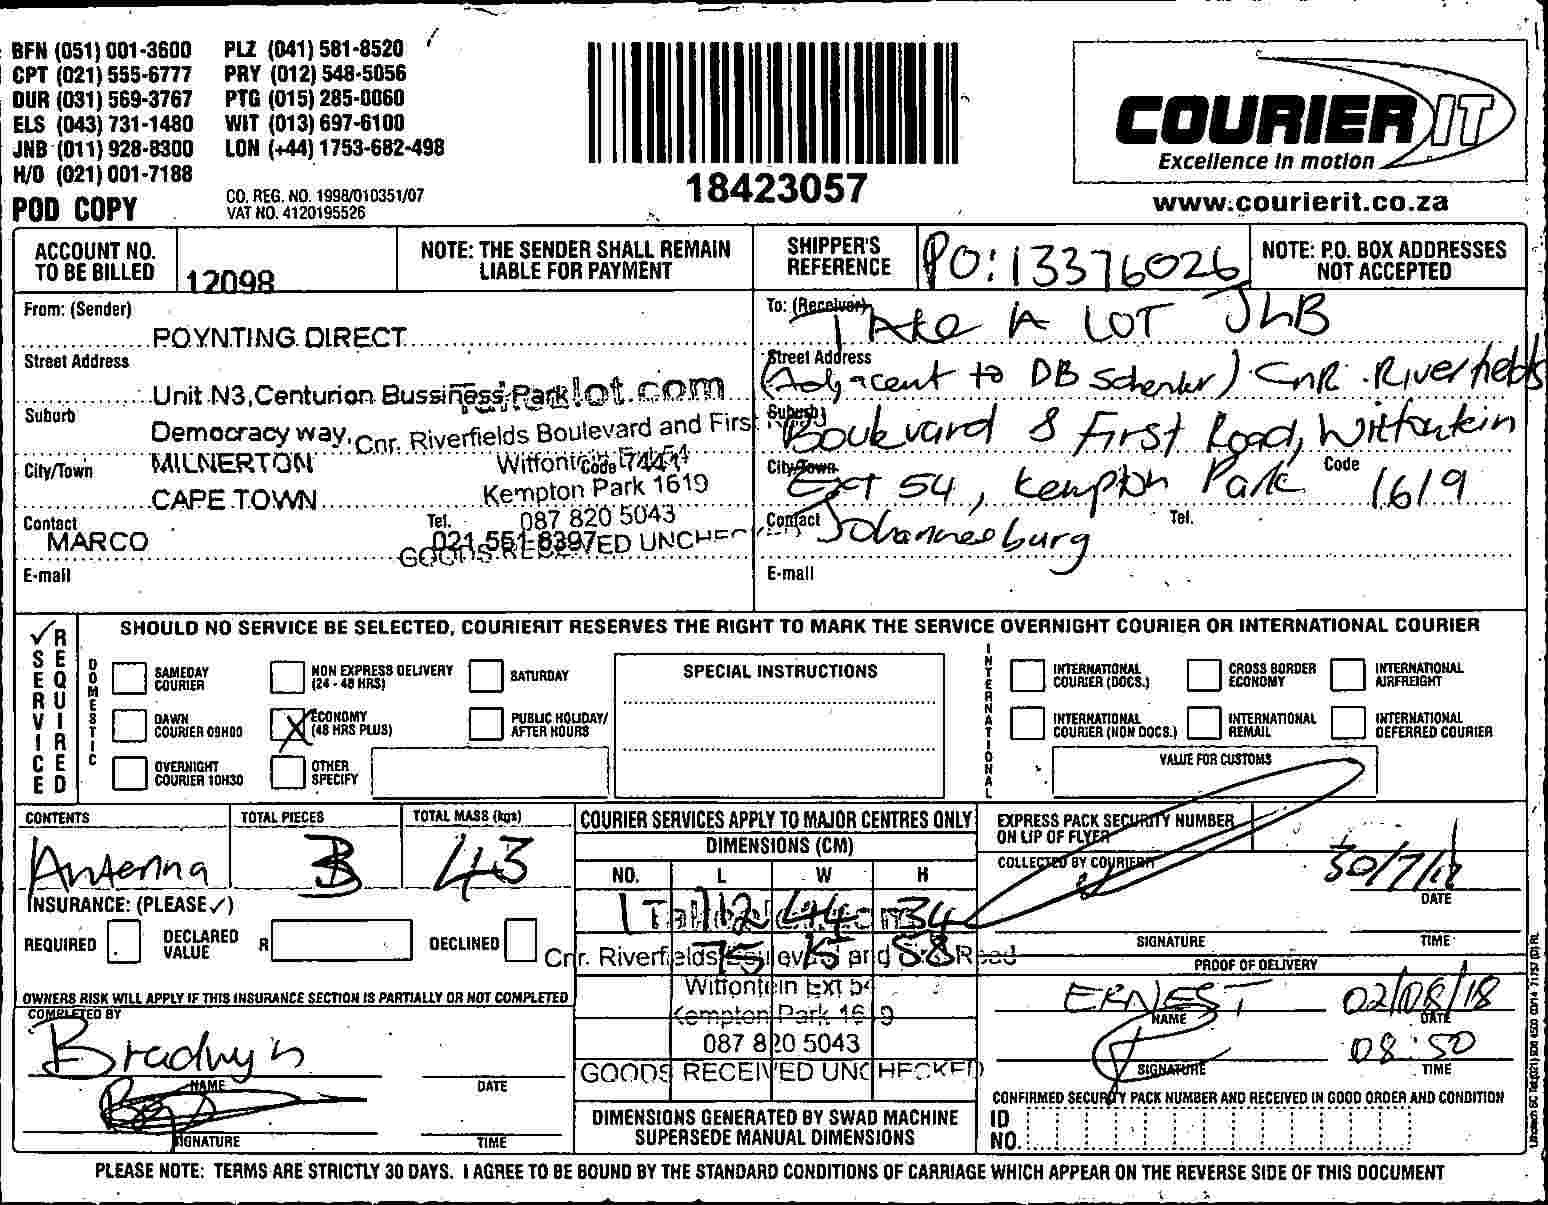 BFN (051) 001-3600 PLZ (041) 581-8520
CPT (021) 555-6777 PRY (012) 548-5056
DUR (031) 569-3767 PTG (015) 285-0060
ELS (043) 731-1480 WIT (013) 697-6100
JNB (011) 928-8300 LON (+44) 1753-682-498
H/O (021) 001-7188
POD COPY
CO. REG. NO. 1998/010351/07
VAT NO. 4120195526
18423057
COURIER IT
Excellence in motion
www.courierit.co.za
ACCOUNT NO.
TO BE BILLED
12098
NOTE: THE SENDER SHALL REMAIN
LIABLE FOR PAYMENT
SHIPPER'S
REFERENCE
PO: 13376026
NOTE: P.O. BOX ADDRESSES
NOT ACCEPTED
From: (Sender)
POYNTING DIRECT
Street Address
Unit N3,Centurion Bussiness Park
Suburb
Democracy way,
MILNERTON
City/Town
Code 7441
CAPE TOWN
Contact
MARCO
Tel.
021 551 8397
E-mail
lot.com
Cnr. Riverfields Boulevard and First
Kempton Park 1619
087 820 5043
GOODS RECEIVED UNCHE
To: (Receiver)
TAke A LOT JHB
Street Address
(Adjacent to DB Schenker) CnR Riverfields
Suburb
Boulevard & First Road, Witfontein
City/Town
Ext 54, Kempton Park Code 1619
Contact
Johannesburg
Tel.
E-mail
SERVICE REQUIRED
SHOULD NO SERVICE BE SELECTED, COURIERIT RESERVES THE RIGHT TO MARK THE SERVICE OVERNIGHT COURIER OR INTERNATIONAL COURIER
DOMESTIC
SAMEDAY
COURIER
NON EXPRESS DELIVERY
(24 - 48 HRS)
SATURDAY
DAWN
COURIER 09H00
X
ECONOMY
(48 HRS PLUS)
PUBLIC HOLIDAY/
AFTER HOURS
OVERNIGHT
COURIER 10H30
OTHER
SPECIFY
SPECIAL INSTRUCTIONS
INTERNATIONAL
INTERNATIONAL
COURIER (DOCS.)
CROSS BORDER
ECONOMY
INTERNATIONAL
AIRFREIGHT
INTERNATIONAL
COURIER (NON DOCS.)
INTERNATIONAL
REMAIL
INTERNATIONAL
DEFERRED COURIER
VALUE FOR CUSTOMS
CONTENTS
Antenna
TOTAL PIECES
3
TOTAL MASS (kgs)
43
INSURANCE: (PLEASE ✓)
REQUIRED
DECLARED
VALUE
R
DECLINED
OWNERS RISK WILL APPLY IF THIS INSURANCE SECTION IS PARTIALLY OR NOT COMPLETED
COMPLETED BY
Bradwyn
NAME
DATE
SIGNATURE
TIME
COURIER SERVICES APPLY TO MAJOR CENTRES ONLY
DIMENSIONS (CM)
NO. L W H
1 112 44 34
75 15 58
Cnr. Riverfields Boulevard and First Road
Witfontein Ext 54
Kempton Park 1619
087 820 5043
GOODS RECEIVED UNCHECKED
DIMENSIONS GENERATED BY SWAD MACHINE
SUPERSEDE MANUAL DIMENSIONS
EXPRESS PACK SECURITY NUMBER
ON LIP OF FLYER
COLLECTED BY COURIERIT
30/7/18
DATE
SIGNATURE
TIME
PROOF OF DELIVERY
ERNEST
NAME
02/08/18
DATE
08:50
SIGNATURE
TIME
CONFIRMED SECURITY PACK NUMBER AND RECEIVED IN GOOD ORDER AND CONDITION
ID
NO.
PLEASE NOTE: TERMS ARE STRICTLY 30 DAYS. I AGREE TO BE BOUND BY THE STANDARD CONDITIONS OF CARRIAGE WHICH APPEAR ON THE REVERSE SIDE OF THIS DOCUMENT